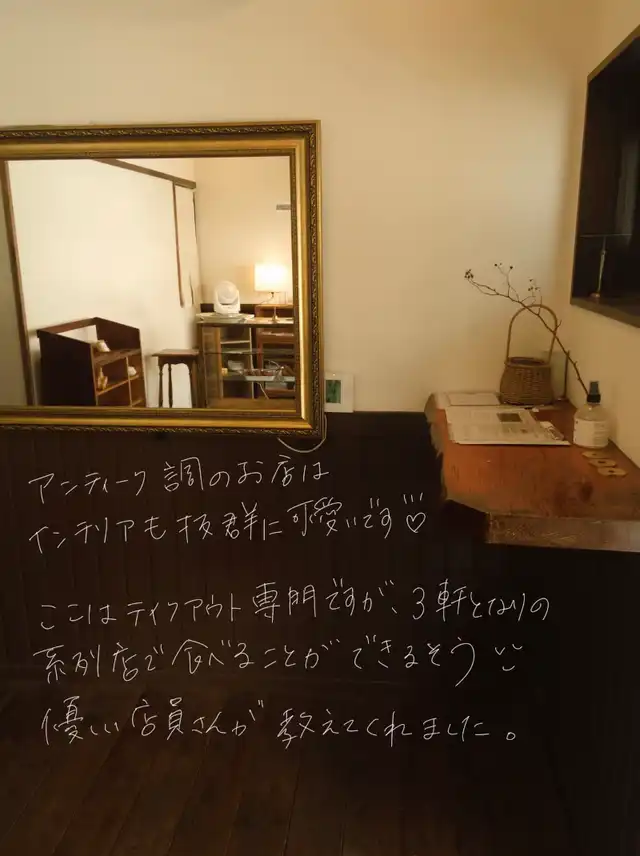 アンティーク調のお店は
インテリアも抜群に可愛いです♡
ここはテイクアウト専門ですが、3軒となりの
系列店で食べることができるそう
優しい店員さんが教えてくれました。